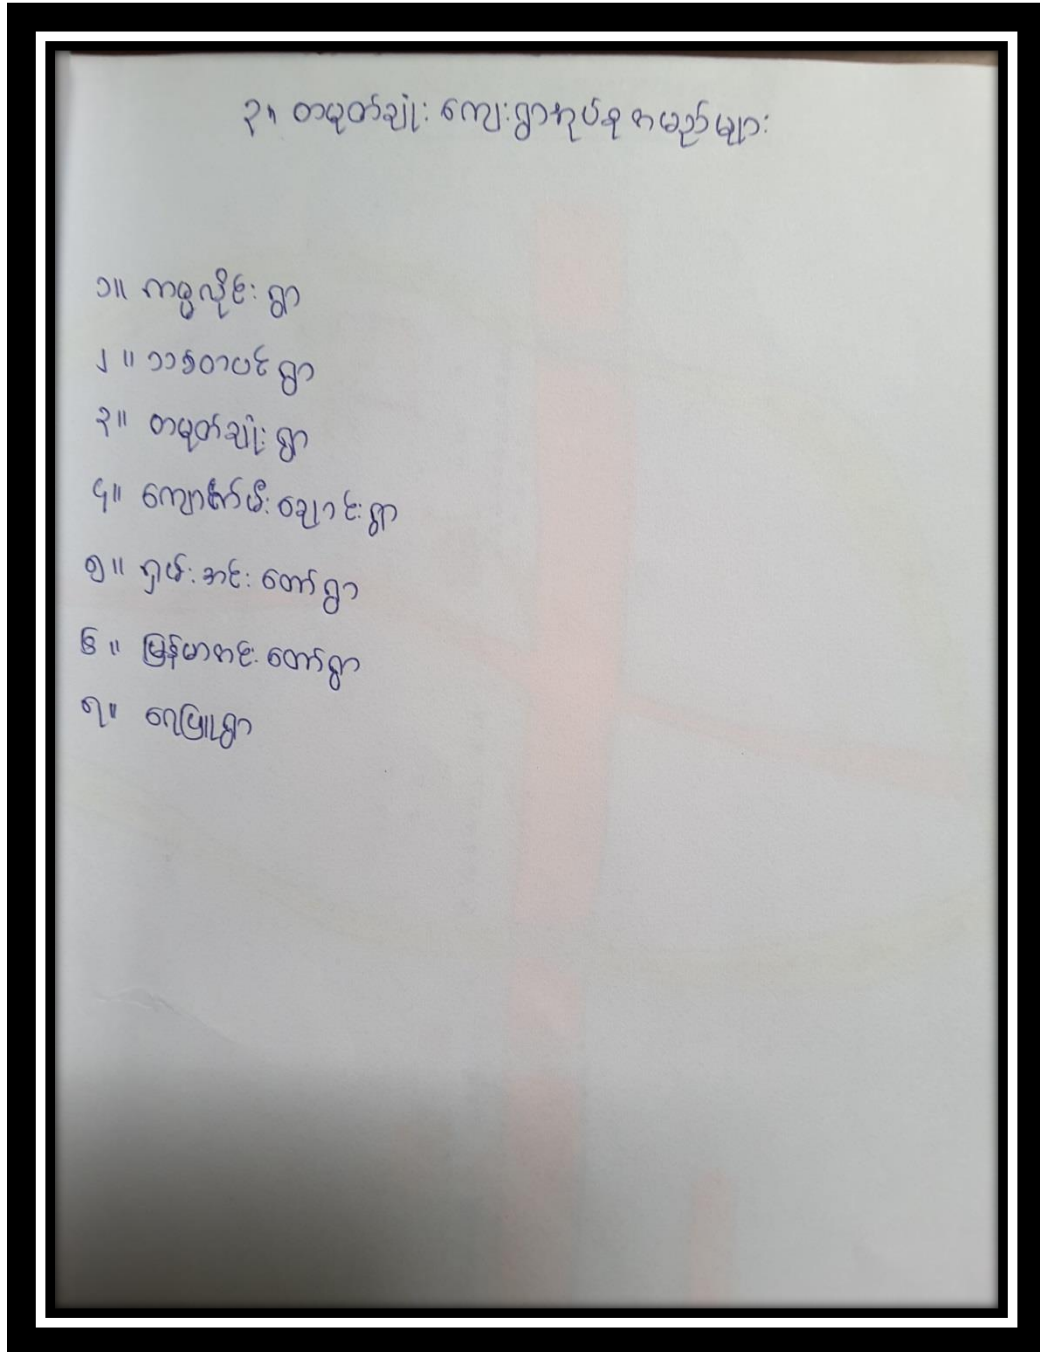 ၃။ တမုတ်ချုံး ကျေးရွာအုပ်စု အမည်များ
၁။ ကဗွလှိုင်း ရွာ
၂။ သစ်တပင် ရွာ
၃။ တမုတ်ချုံး ရွာ
၄။ ကျောက်မီးချောင်းရွာ
၅။ ရှမ်းအင်း တော်ရွာ
၆။ မြန်မာအင်း တော်ရွာ
၇။ ရေဖြူရွာ